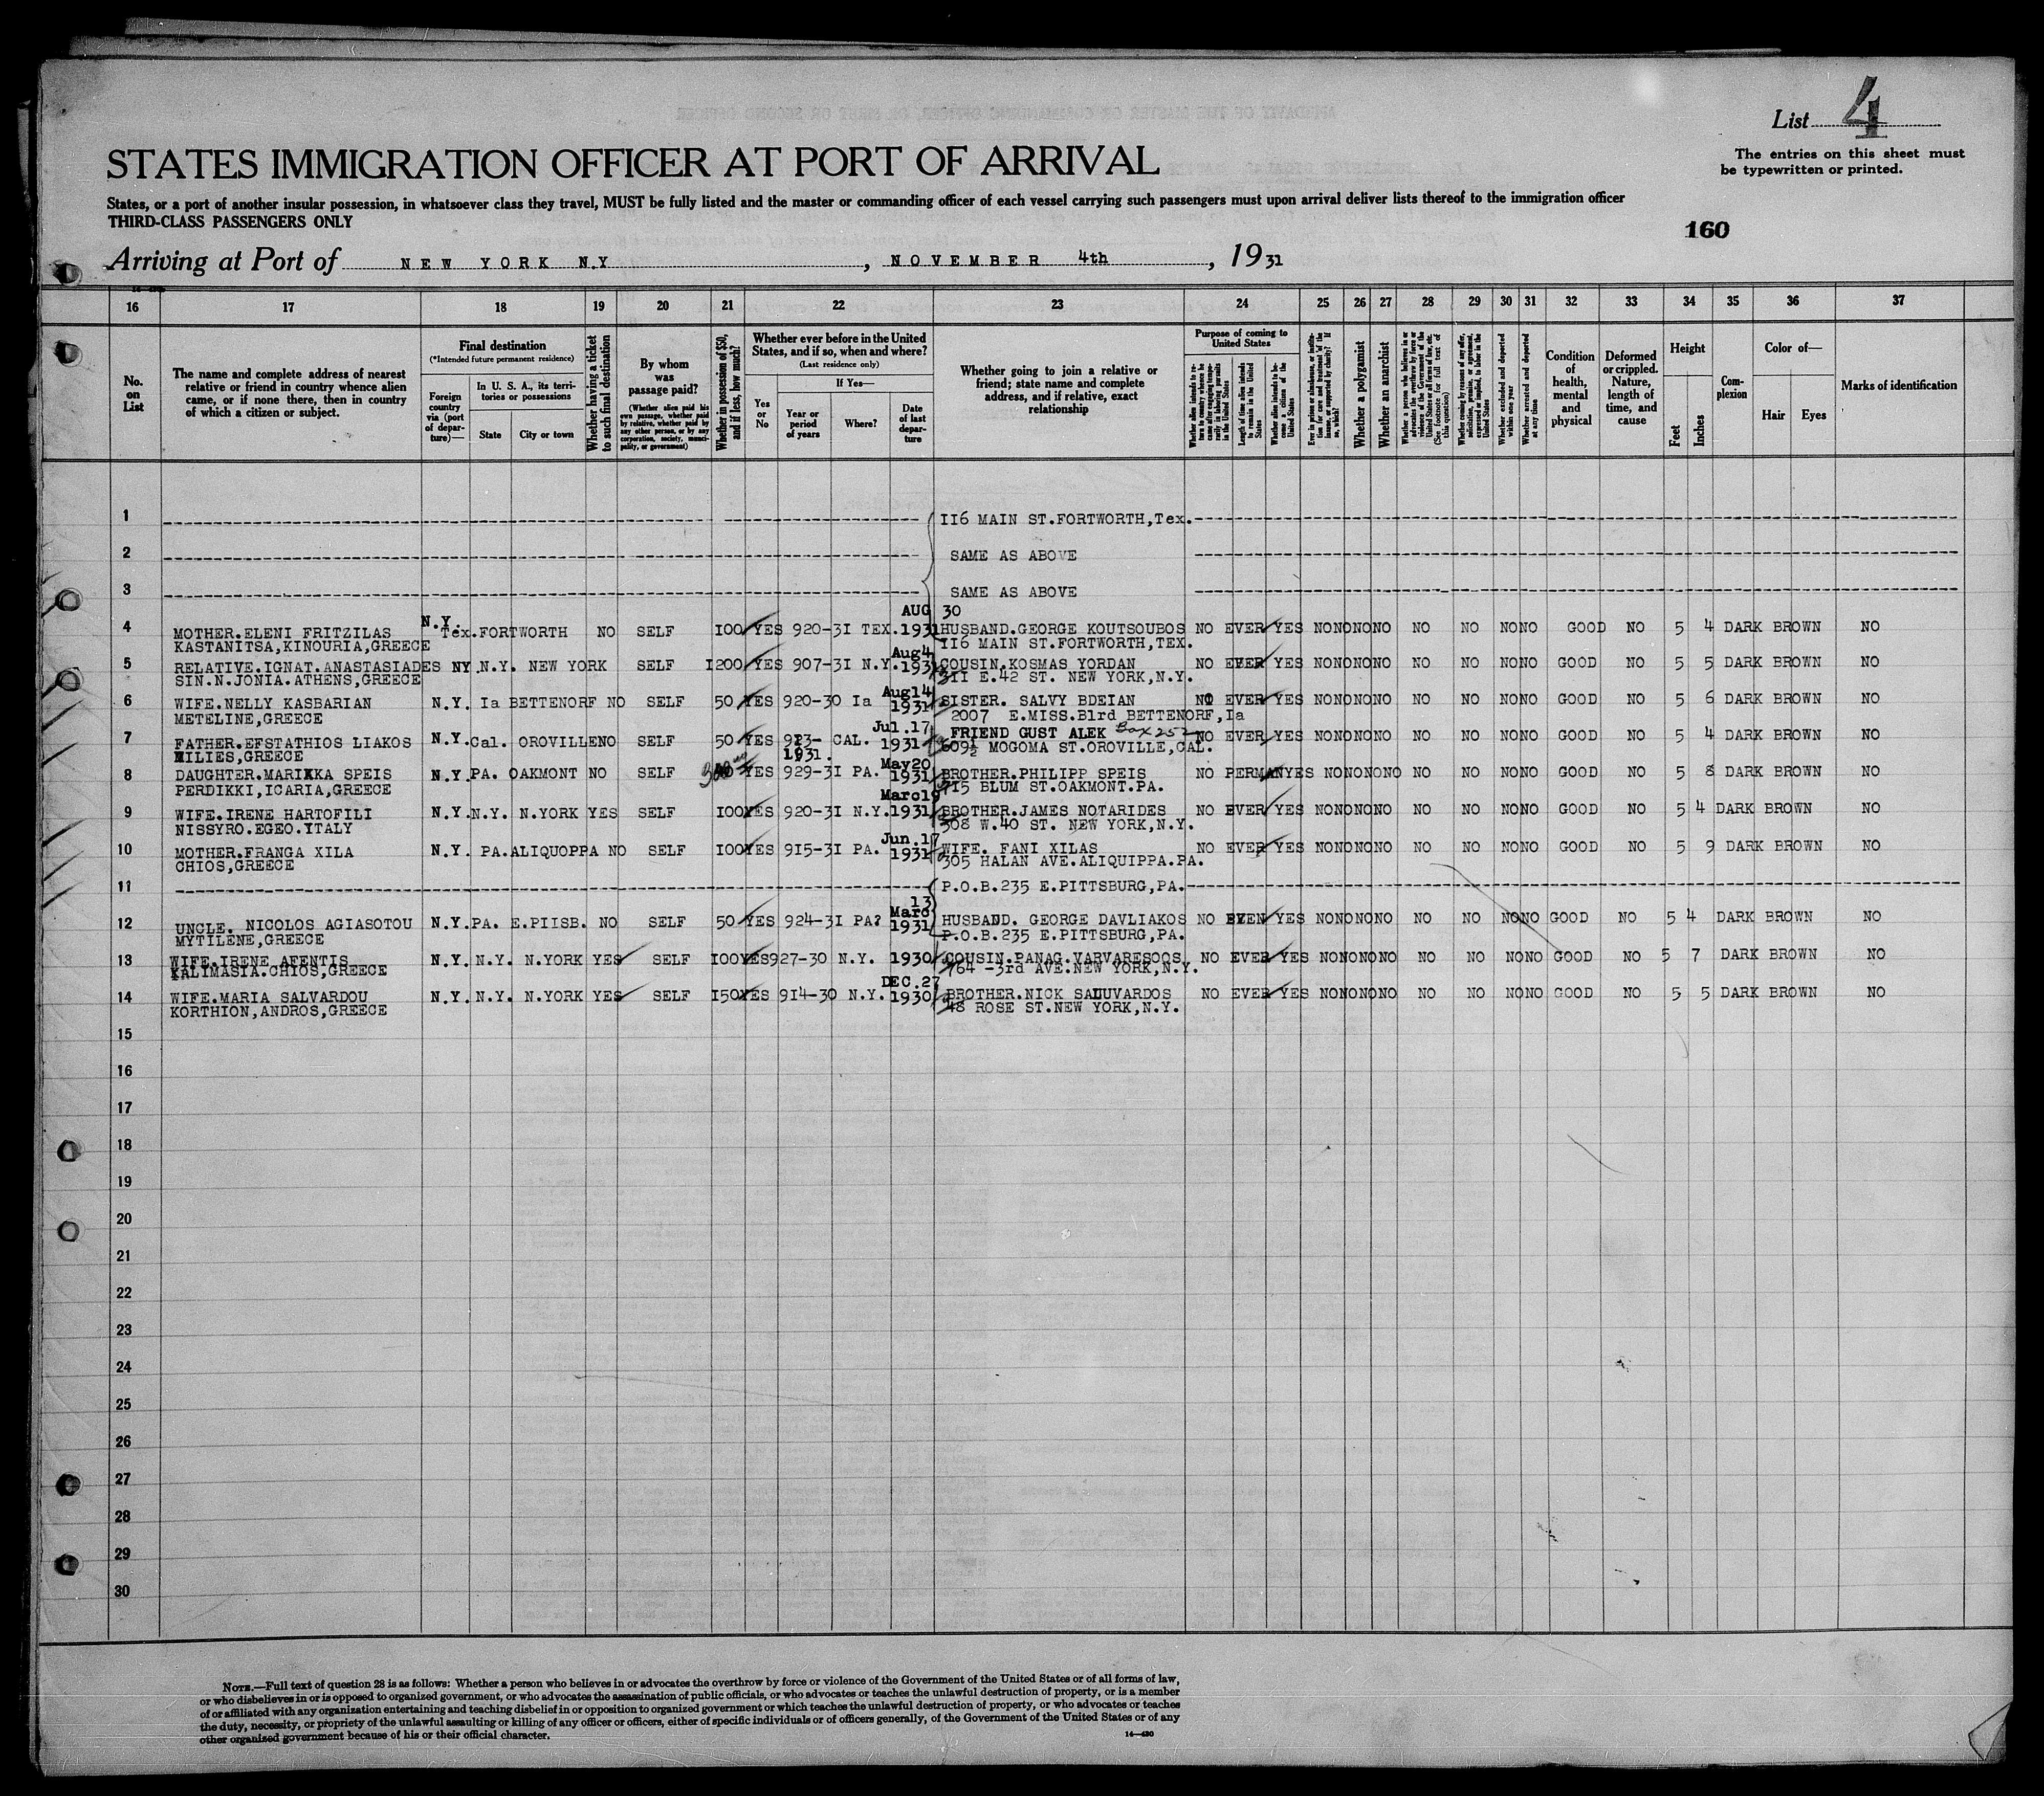 List 4
The entries on this sheet must
be typewritten or printed.
STATES IMMIGRATION OFFICER AT PORT OF ARRIVAL
States, or a port of another insular possession, in whatsoever class they travel, MUST be fully listed and the master or commanding officer of each vessel carrying such passengers must upon arrival deliver lists thereof to the immigration officer
THIRD-CLASS PASSENGERS ONLY
160
Arriving at Port of NEW YORK N.Y , NOVEMBER 4th , 1931
16 17 18 19 20 21 22 23 24 25 26 27 28 29 30 31 32 33 34 35 36 37
No. on List
The name and complete address of nearest relative or friend in country whence alien came, or if none there, then in country of which a citizen or subject.
Final destination
(*Intended future permanent residence)
Foreign country via (port of departure)—
In U. S. A., its territories or possessions
State
City or town
Whether having a ticket to such final destination
By whom was passage paid?
(Whether alien paid his own passage, whether paid by relative, whether paid by any other person, or by any corporation, society, municipality, or government)
Whether in possession of $50, and if less, how much?
Whether ever before in the United States, and if so, when and where?
(Last residence only)
Yes or No
If Yes—
Year or period of years
Where?
Date of last departure
Whether going to join a relative or friend; state name and complete address, and if relative, exact relationship
Purpose of coming to United States
Length of time alien intends to remain in the United States
Whether alien intends to become a citizen of the United States
Whether a polygamist
Whether an anarchist
Whether excluded and deported within one year
Whether arrested and deported at any time
Condition of health, mental and physical
Deformed or crippled. Nature, length of time, and cause
Height
Feet
Inches
Complexion
Color of—
Hair
Eyes
Marks of identification
1 II6 MAIN ST.FORTWORTH,Tex.
2 SAME AS ABOVE
3 SAME AS ABOVE
N.Y. AUG 30
4 MOTHER.ELENI FRITZILAS Tex.FORTWORTH NO SELF I00 YES 920-3I TEX. 1931 HUSBAND.GEORGE KOUTSOUBOS NO EVER YES NO NO NO NO NO NO NO NO GOOD NO 5 4 DARK BROWN NO
KASTANITSA,KINOURIA,GREECE II6 MAIN ST.FORTWORTH,TEX.
Aug4
5 RELATIVE.IGNAT.ANASTASIADES NY N.Y. NEW YORK SELF I200 YES 907-3I N.Y. 1931 COUSIN.KOSMAS YORDAN NO EVER YES NO NO NO NO NO NO NO NO GOOD NO 5 5 DARK BROWN NO
SIN.N.JONIA.ATHENS,GREECE 3II E.42 ST. NEW YORK,N.Y.
Aug14
6 WIFE.NELLY KASBARIAN N.Y. Ia BETTENORF NO SELF 50 YES 920-30 Ia 1931 SISTER. SALVY BDEIAN NO EVER YES NO NO NO NO NO NO NO NO GOOD NO 5 6 DARK BROWN NO
METELINE,GREECE 2007 E.MISS.Blrd BETTENORF,Ia
Jul.17
7 FATHER.EFSTATHIOS LIAKOS N.Y. Cal. OROVILLE NO SELF 50 YES 923- CAL. 1931 FRIEND GUST ALEK Box 252 NO EVER YES NO NO NO NO NO NO NO NO GOOD NO 5 4 DARK BROWN NO
MILIES,GREECE 1931. 609½ MOGOMA ST.OROVILLE,CAL.
May20
8 DAUGHTER.MARIKKA SPEIS N.Y. PA. OAKMONT NO SELF YES 929-3I PA. 1931 BROTHER.PHILIPP SPEIS NO PERMAN YES NO NO NO NO NO NO NO NO GOOD NO 5 8 DARK BROWN NO
PERDIKKI,ICARIA,GREECE 715 BLUM ST.OAKMONT.PA.
Marc19
9 WIFE.IRENE HARTOFILI N.Y. N.Y. N.YORK YES SELF I00 YES 920-3I N.Y. 1931 BROTHER.JAMES NOTARIDES NO EVER YES NO NO NO NO NO NO NO NO GOOD NO 5 4 DARK BROWN NO
NISSYRO.EGEO.ITALY 308 W.40 ST. NEW YORK,N.Y.
Jun.17
10 MOTHER.FRANGA XILA N.Y. PA. ALIQUOPPA NO SELF I00 YES 915-3I PA. 1931 WIFE. FANI XILAS NO EVER YES NO NO NO NO NO NO NO NO GOOD NO 5 9 DARK BROWN NO
CHIOS,GREECE 305 HALAN AVE.ALIQUIPPA.PA.
11 P.O.B.235 E.PITTSBURG,PA.
13 Marc
12 UNCLE. NICOLOS AGIASOTOU N.Y. PA. E.PIISB. NO SELF 50 YES 924-3I PA? 1931 HUSBAND. GEORGE DAVLIAKOS NO EVEN YES NO NO NO NO NO NO NO NO GOOD NO 5 4 DARK BROWN NO
MYTILENE,GREECE P.O.B.235 E.PITTSBURG,PA.
13 WIFE.IRENE AFENTIS N.Y. N.Y. N.YORK YES SELF I00 YES 927-30 N.Y. 1930 COUSIN.PANAG.VARVARESOOS NO EVER YES NO NO NO NO NO NO NO NO GOOD NO 5 7 DARK BROWN NO
KALIMASIA.CHIOS,GREECE 764 -3rd AVE.NEW YORK,N.Y.
DEC.27
14 WIFE.MARIA SALVARDOU N.Y. N.Y. N.YORK YES SELF I50 YES 914-30 N.Y. 1930 BROTHER.NICK SALUVARDOS NO EVER YES NO NO NO NO NO NO NO NO GOOD NO 5 5 DARK BROWN NO
KORTHION,ANDROS,GREECE 48 ROSE ST.NEW YORK,N.Y.
15
16
17
18
19
20
21
22
23
24
25
26
27
28
29
30
NOTE.—Full text of question 28 is as follows: Whether a person who believes in or advocates the overthrow by force or violence of the Government of the United States or of all forms of law,
or who disbelieves in or is opposed to organized government, or who advocates the assassination of public officials, or who advocates or teaches the unlawful destruction of property, or is a member
of or affiliated with any organization entertaining and teaching disbelief in or opposition to organized government or which teaches the unlawful destruction of property, or who advocates or teaches
the duty, necessity, or propriety of the unlawful assaulting or killing of any officer or officers, either of specific individuals or of officers generally, of the Government of the United States or of any
other organized government because of his or their official character.
14—430